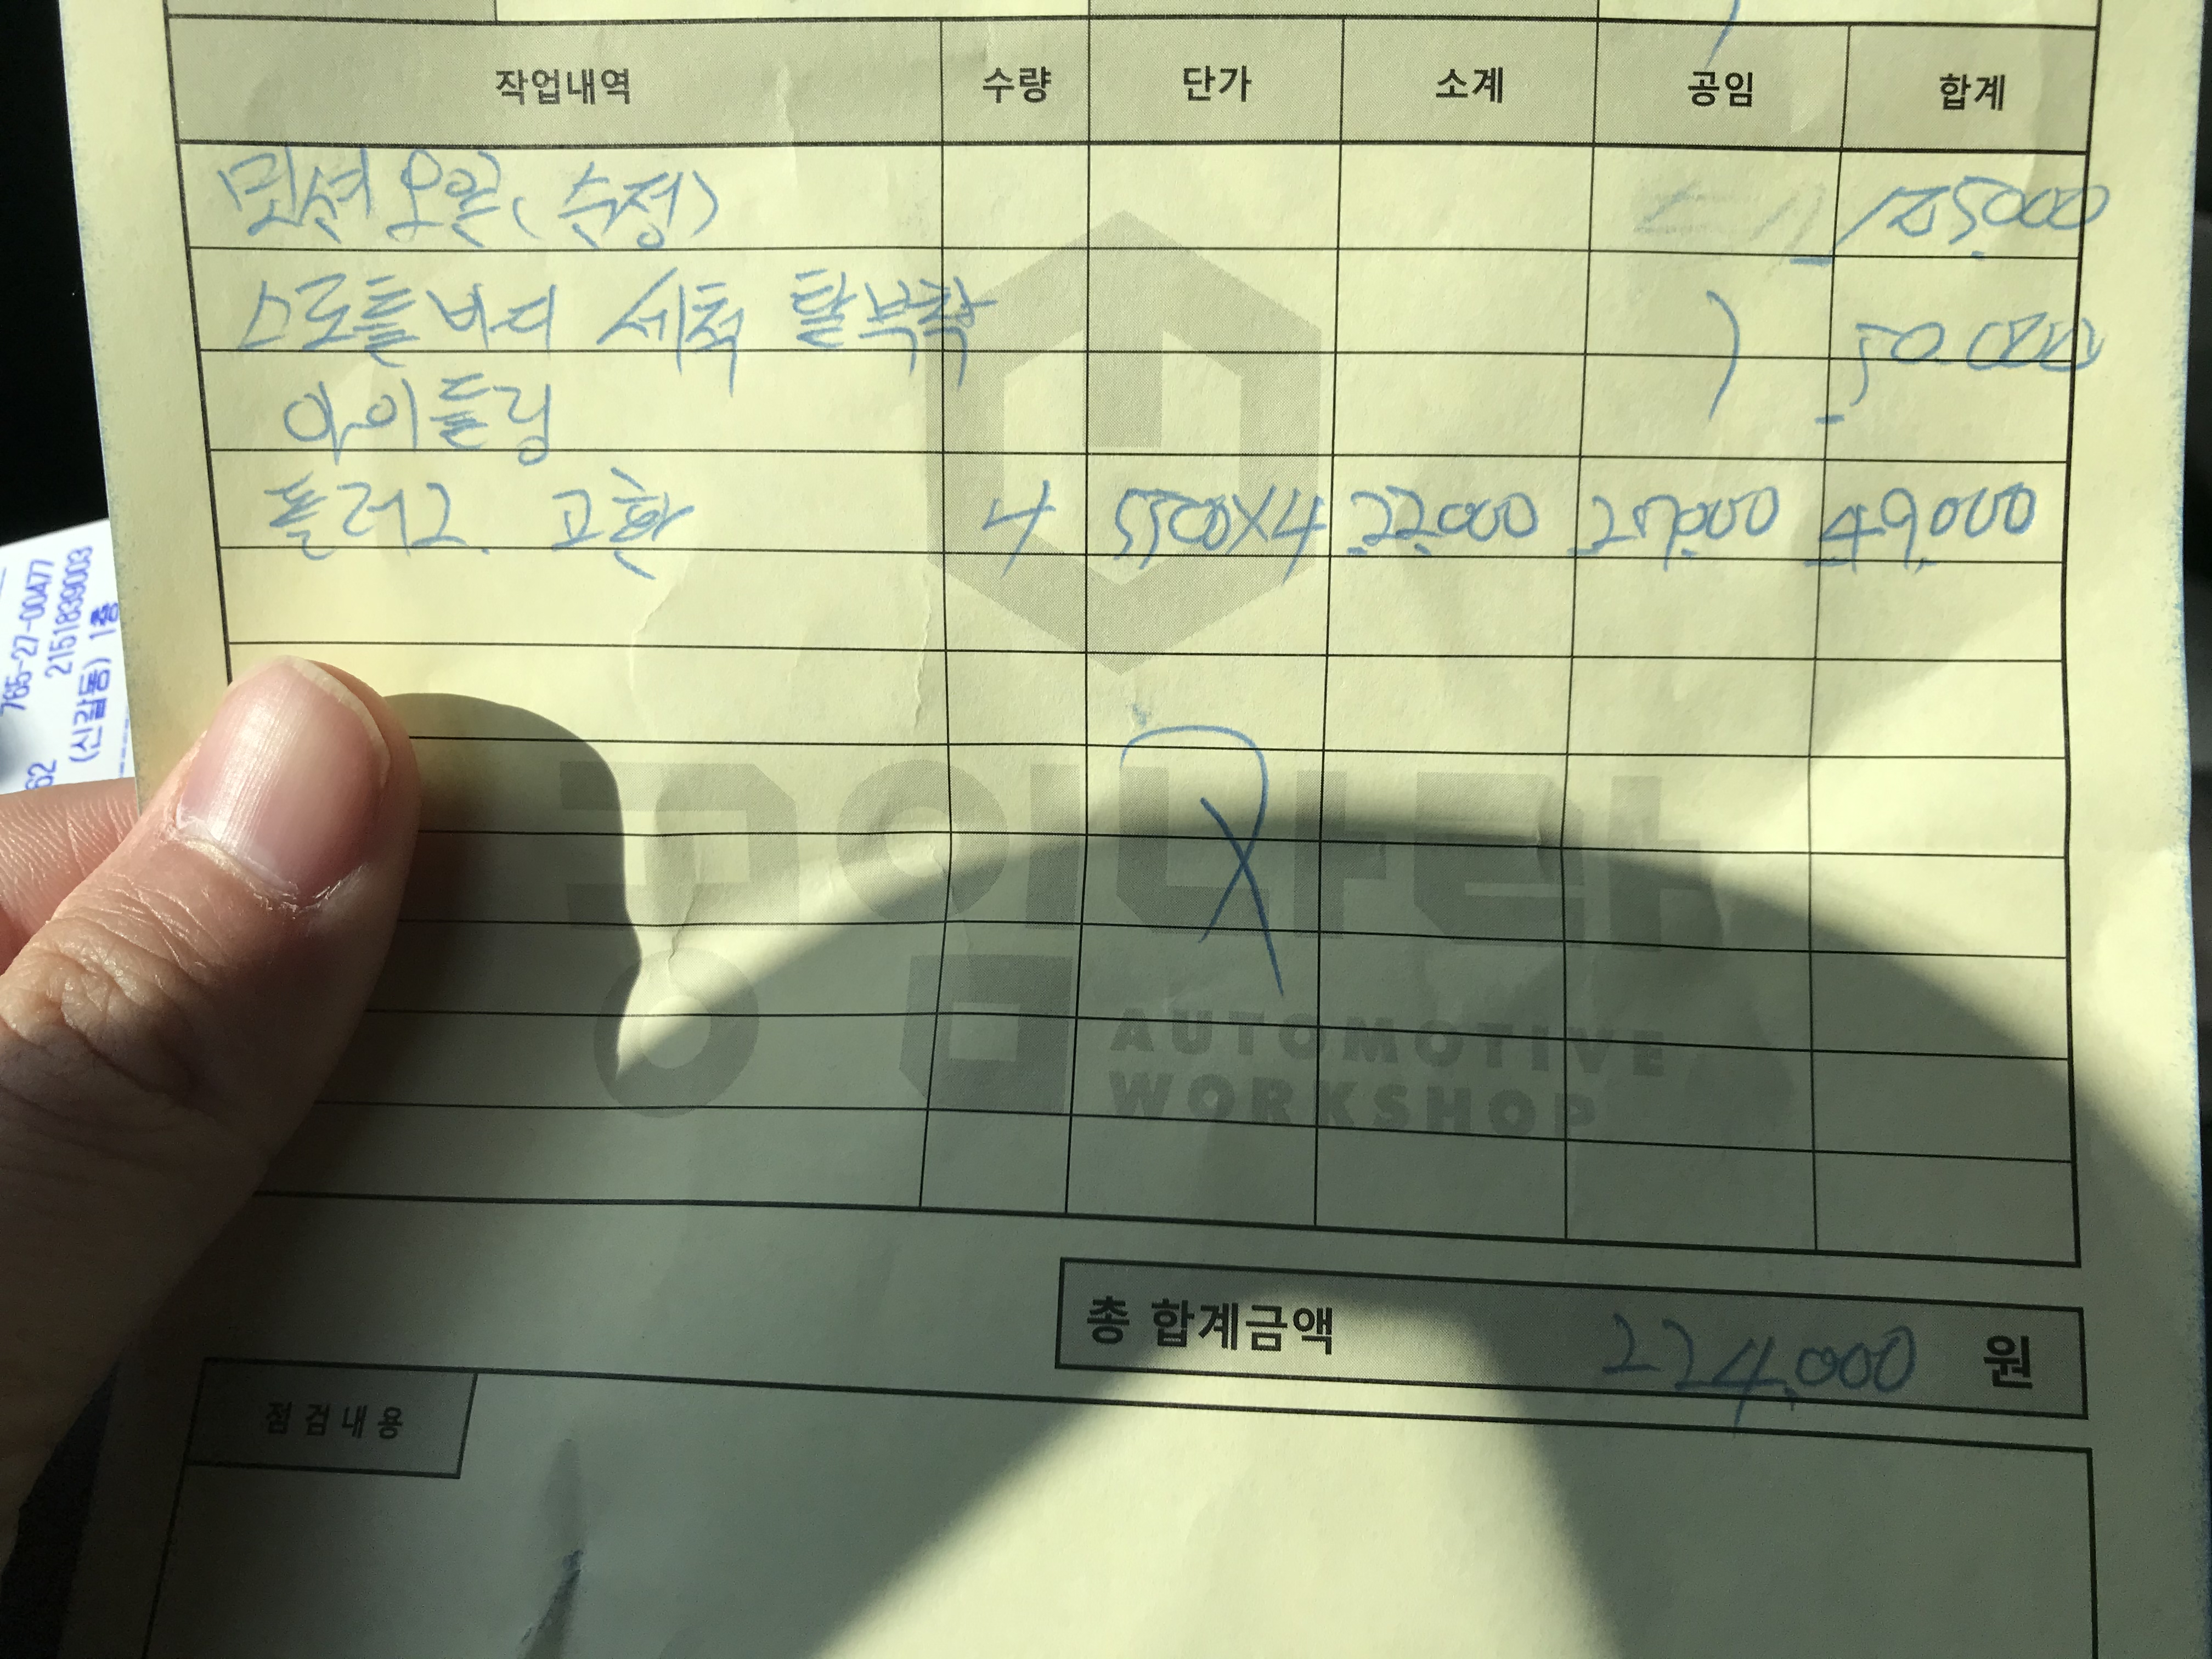 작업내역 수량 단가 소계 공임 합계
밋션오일(순정) 125,000
스로틀바디 세척 탈부착 50.000
아이들링
플러그. 교환 4 5500X4 22,000 27,000 49,000
공임나라
공임
AUTOMOTIVE
WORKSHOP
총 합계금액 224,000 원
점검내용
765-27-00477
2151839003
(신갈동) 1층
62